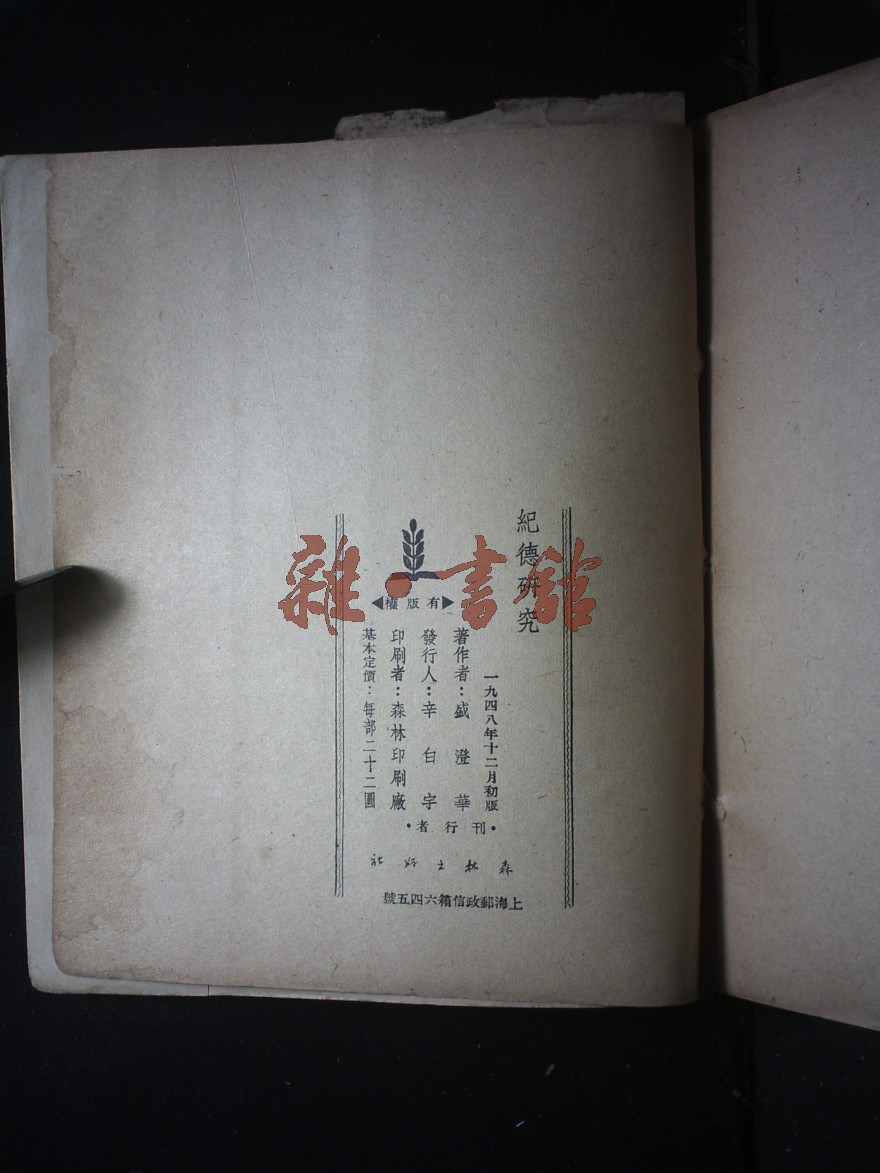 紀德研究
一九四八年十二月初版
著作者：盛澄華
發行人：辛白宇
印刷者：森林印刷廠
基本定價：每部二十二圓
▶有版權◀
•刊行者•
森林出版社
上海郵政信箱六四五號
雜·書館